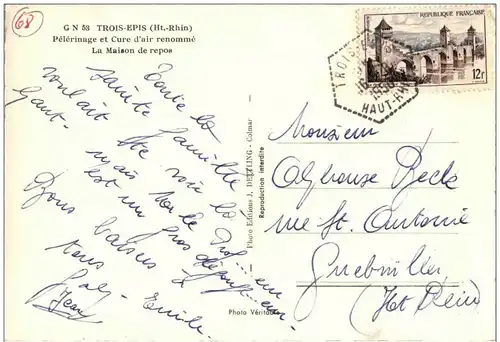 68
G N 53 TROIS-EPIS (Ht.-Rhin)
Pélérinage et Cure d'air renommé
La Maison de repos
Toute la
sainte famille
voulait te voir là
haut.
mais
est un gros
Bons baisers
tous
Jean
Emile.
Photo Editions J. DETTLING - Colmar
Reproduction interdite
Photo Véritable
REPUBLIQUE FRANÇAISE
12f
TROIS
HAUT-RH
Monsieur
Alphonse Beck
rue St. Antoine
Guebwiller
(Ht Rhin)